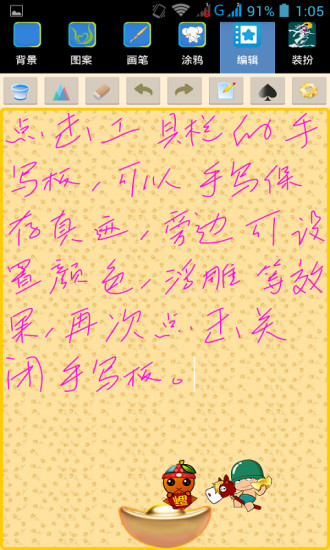 G 91% 1:05
背景 图案 画笔 涂鸦 编辑 装扮
点击工具栏的手
写板，可以手写保
存真迹，旁边可设
置颜色，浮雕等效
果，再次点击关
闭手写板。